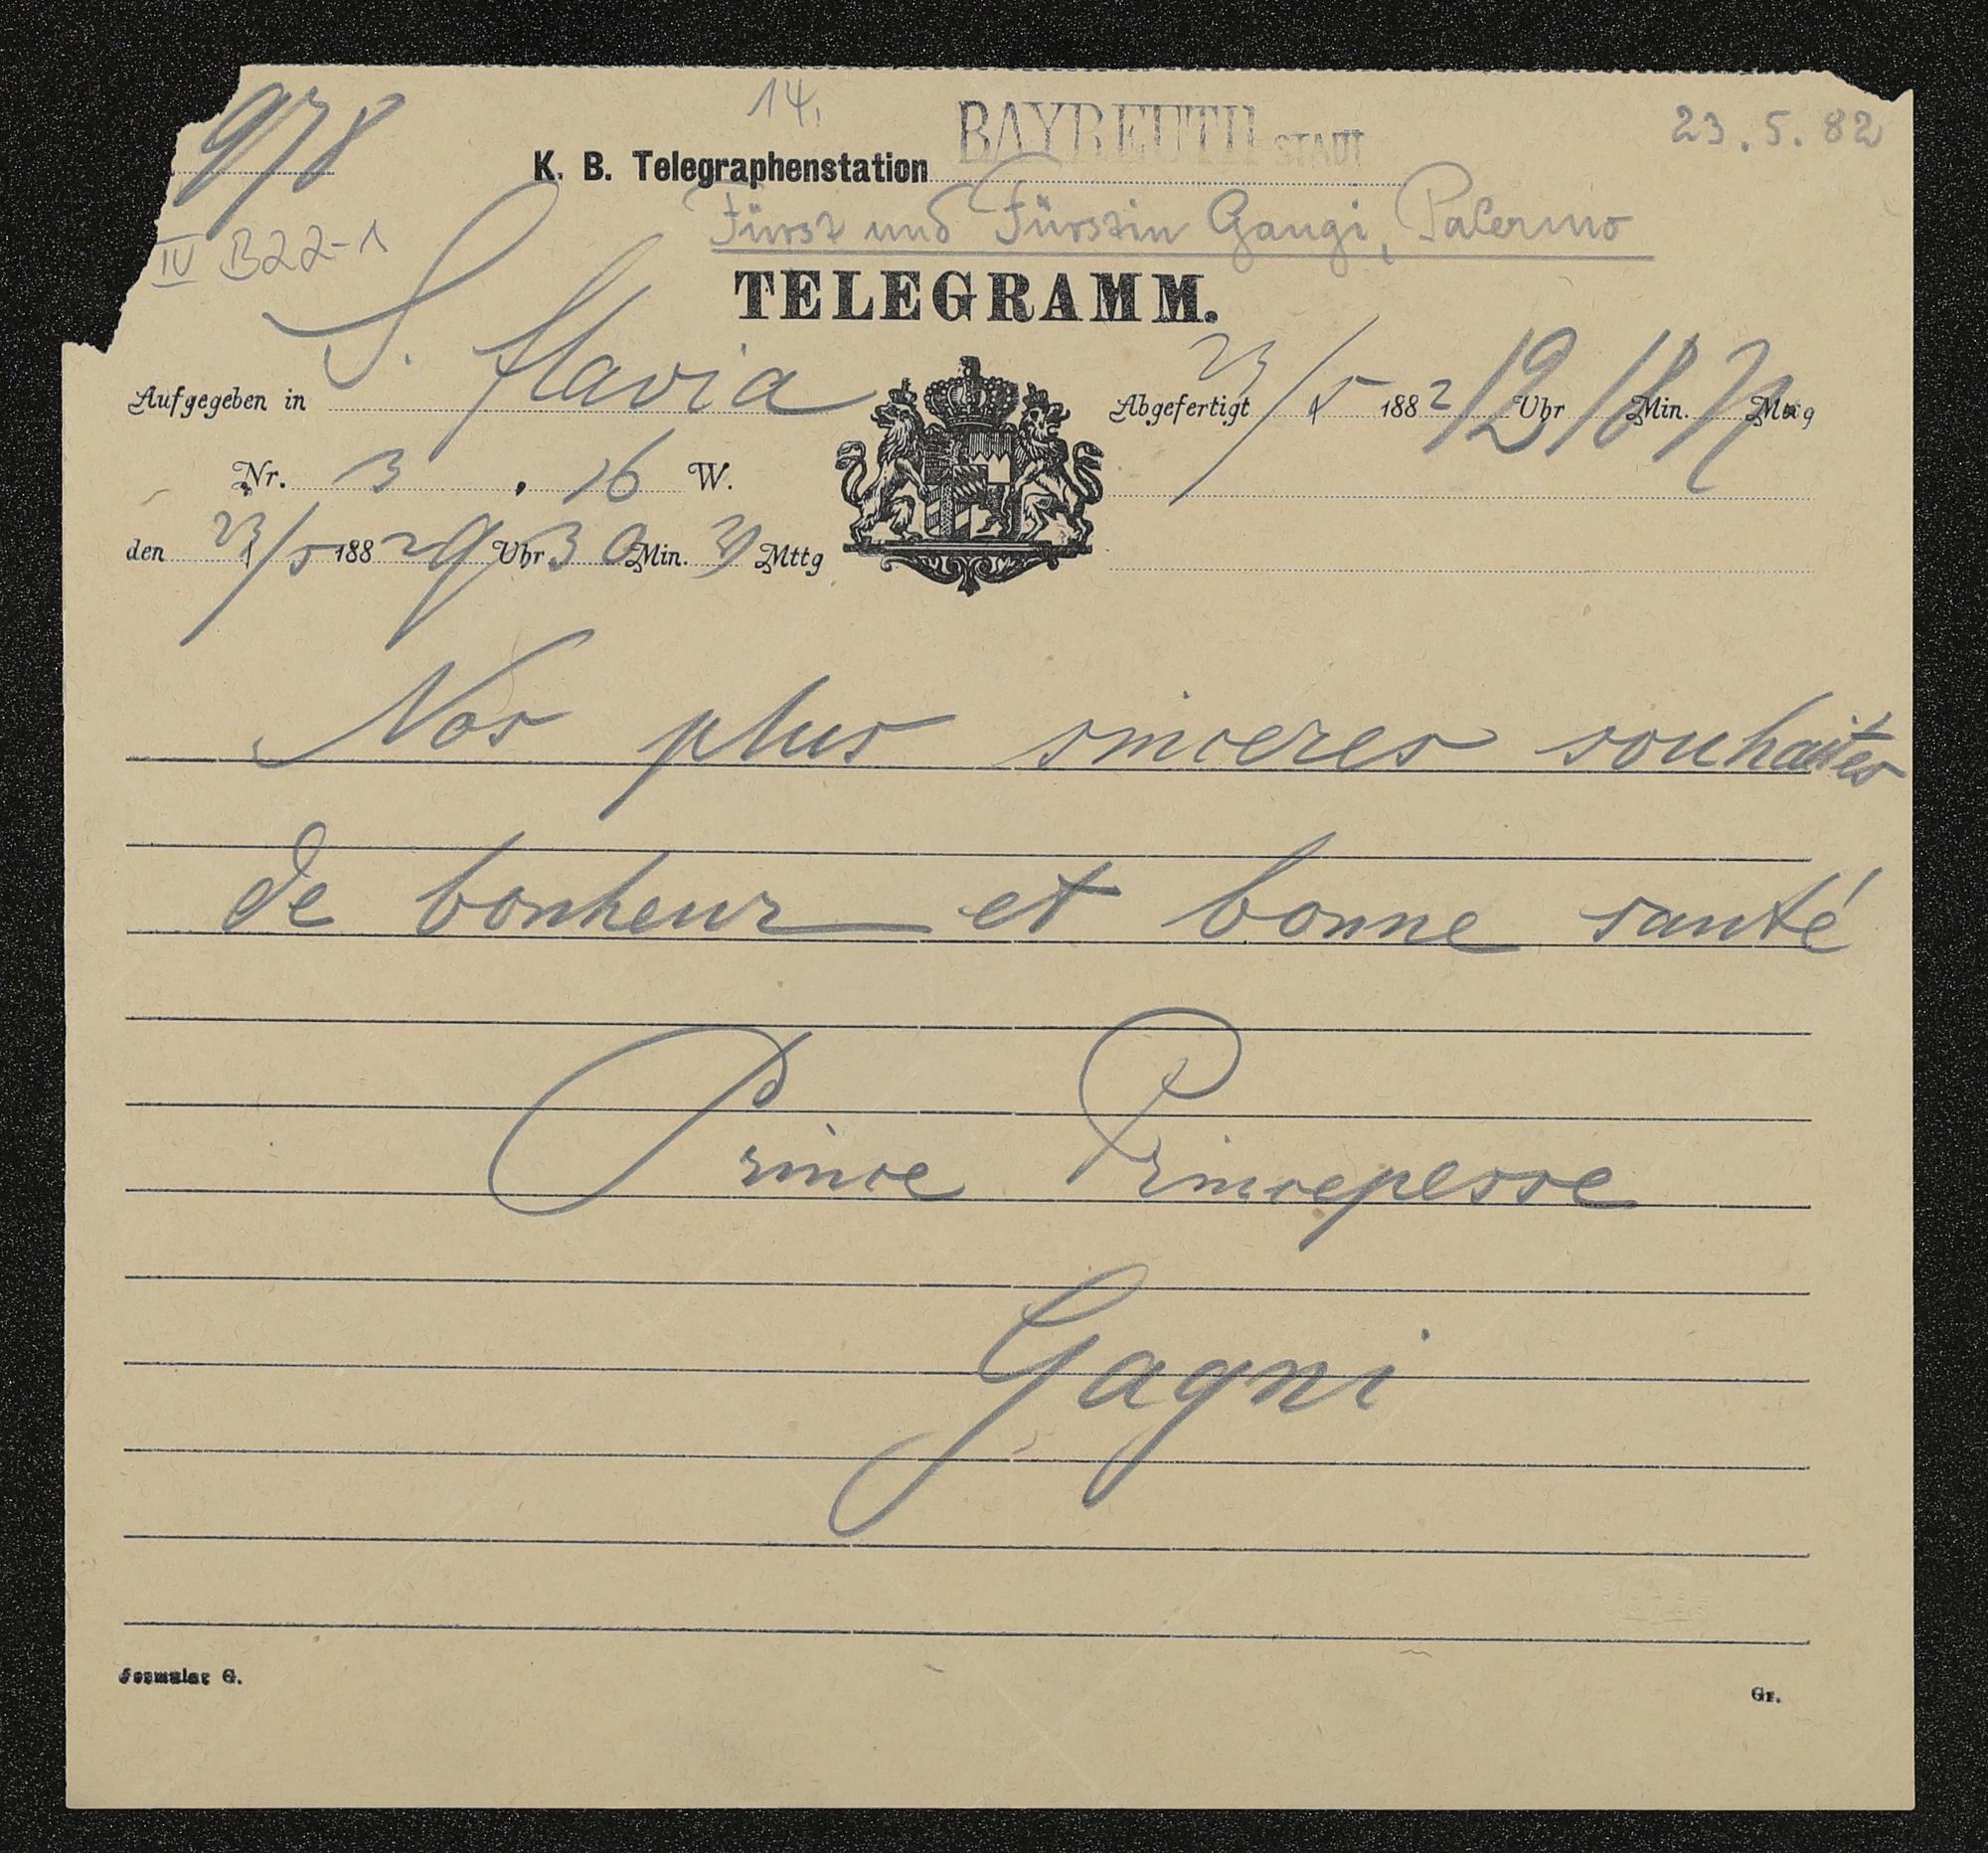 978
14.
BAYREUTH STADT
23.5.82
K. B. Telegraphenstation
IV B22-1
Fürst und Fürstin Gangi, Palermo
TELEGRAMM.
Aufgegeben in S. flavia
Abgefertigt 23/5 1882 12 Uhr 18 Min. Mttg
Nr. 3, 16 W.
den 23/5 1882 9 Uhr 30 Min. Mttg
Nos plus sinceres souhaites
de bonheur et bonne santé
Prince Princepesse
Gagni
Formular G.
Gr.